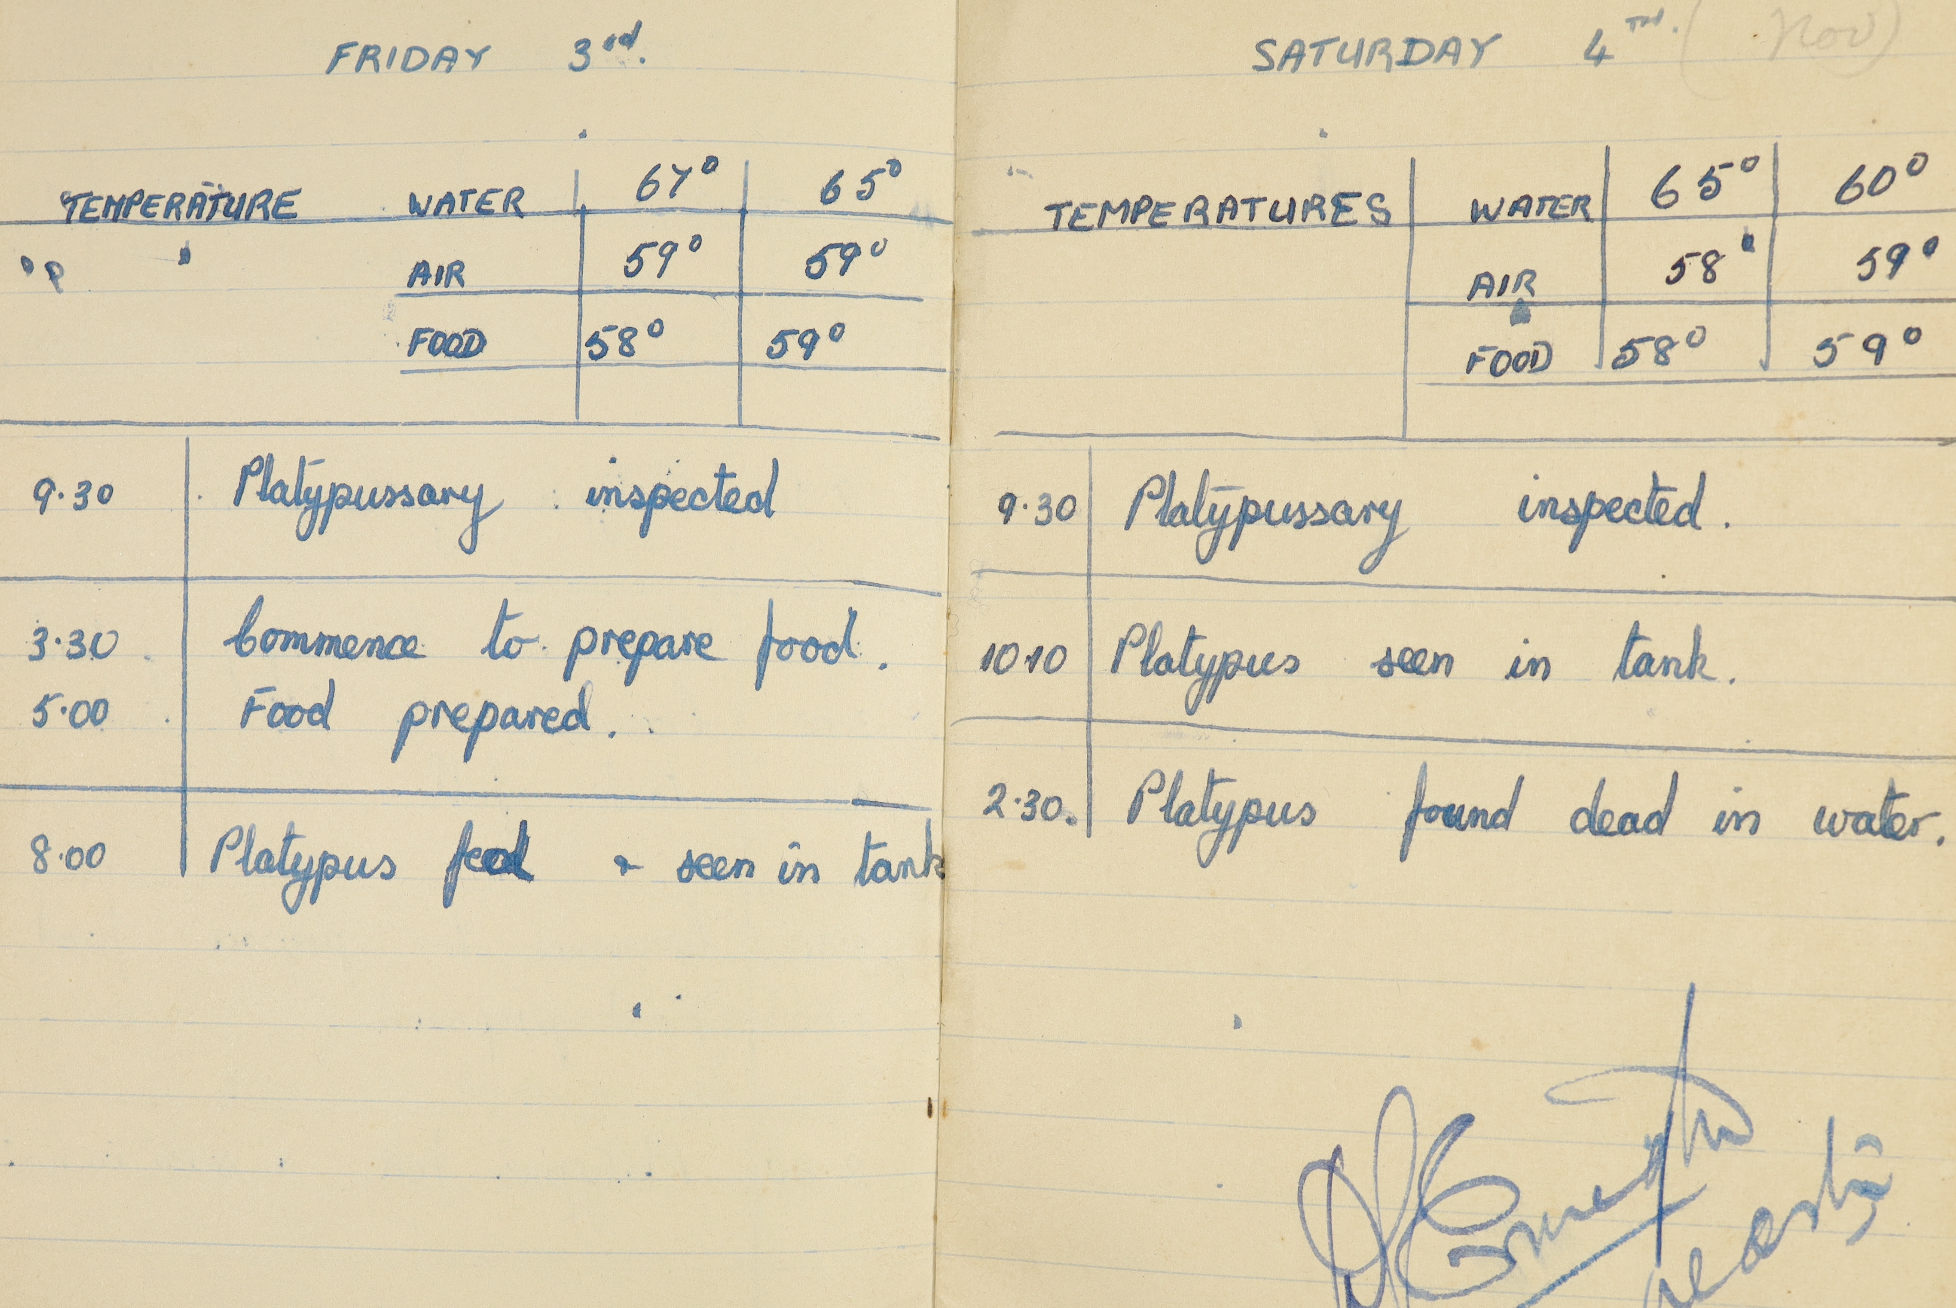 FRIDAY 3rd.
TEMPERATURE WATER 67° 65°
" " AIR 59° 59°
FOOD 58° 59°
9.30 Platypussary inspected
3.30 Commence to prepare food.
5.00 Food prepared.
8.00 Platypus fed & seen in tank
SATURDAY 4TH. (Nov)
TEMPERATURES WATER 65° 60°
AIR 58° 59°
FOOD 58° 59°
9.30 Platypussary inspected.
10.10 Platypus seen in tank.
2.30. Platypus found dead in water.